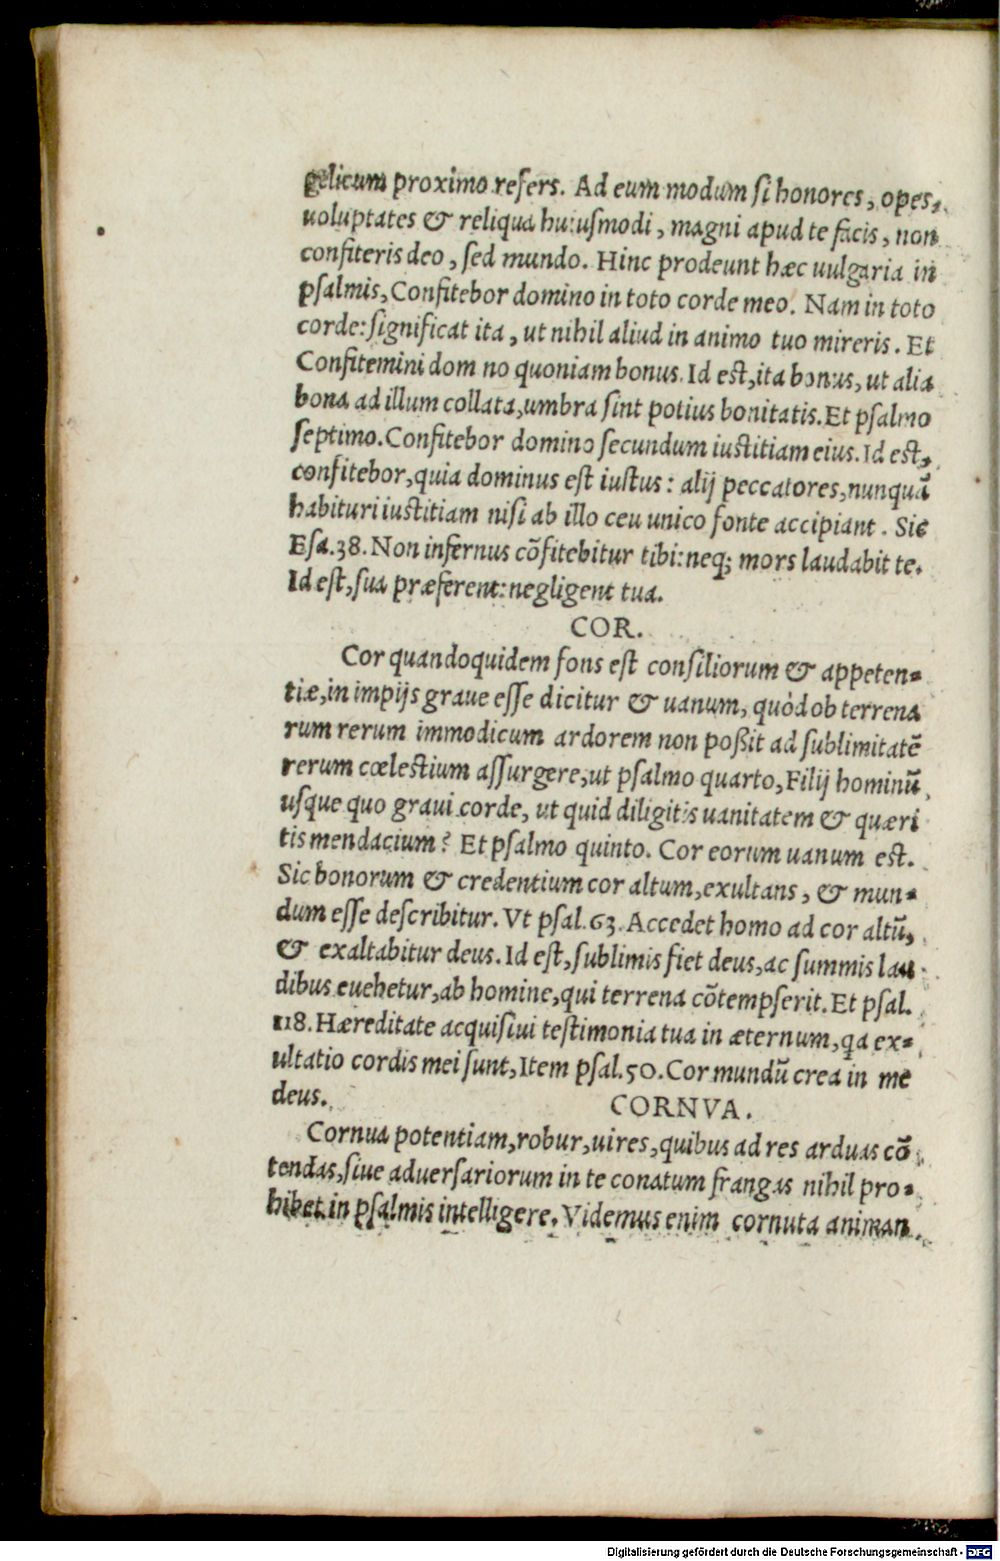 gelicum proximo refers. Ad eum modum si honores, opes,
uoluptates & reliqua huiusmodi, magni apud te facis, non
confiteris deo, sed mundo. Hinc prodeunt hæc uulgaria in
psalmis, Confitebor domino in toto corde meo. Nam in toto
corde: significat ita, ut nihil aliud in animo tuo mireris. Et
Confitemini dom no quoniam bonus. Id est, ita bonus, ut alia
bona ad illum collata, umbra sint potius bonitatis. Et psalmo
septimo. Confitebor domino secundum iustitiam eius. Id est,
confitebor, quia dominus est iustus: alij peccatores, nunquā
habituri iustitiam nisi ab illo ceu unico fonte accipiant. Sic
Esa. 38. Non infernus cōfitebitur tibi: neq; mors laudabit te.
Id est, sua præferent: negligent tua.
COR.
Cor quandoquidem fons est consiliorum & appeten-
tiæ, in impijs graue esse dicitur & uanum, quòd ob terrena
rum rerum immodicum ardorem non poßit ad sublimitatē
rerum cœlestium assurgere, ut psalmo quarto, Filij hominū
usque quo graui corde, ut quid diligitis uanitatem & quæri
tis mendacium? Et psalmo quinto. Cor eorum uanum est.
Sic bonorum & credentium cor altum, exultans, & mun-
dum esse describitur. Vt psal. 63. Accedet homo ad cor altū,
& exaltabitur deus. Id est, sublimis fiet deus, ac summis lau
dibus euehetur, ab homine, qui terrena cōtempserit. Et psal.
118. Hæreditate acquisiui testimonia tua in æternum, qa ex-
ultatio cordis mei sunt, Item psal. 50. Cor mundū crea in me
deus.
CORNVA.
Cornua potentiam, robur, uires, quibus ad res arduas cō
tendas, siue aduersariorum in te conatum frangas nihil pro-
hibet in psalmis intelligere. Videmus enim cornuta animan
Digitalisierung gefördert durch die Deutsche Forschungsgemeinschaft - DFG